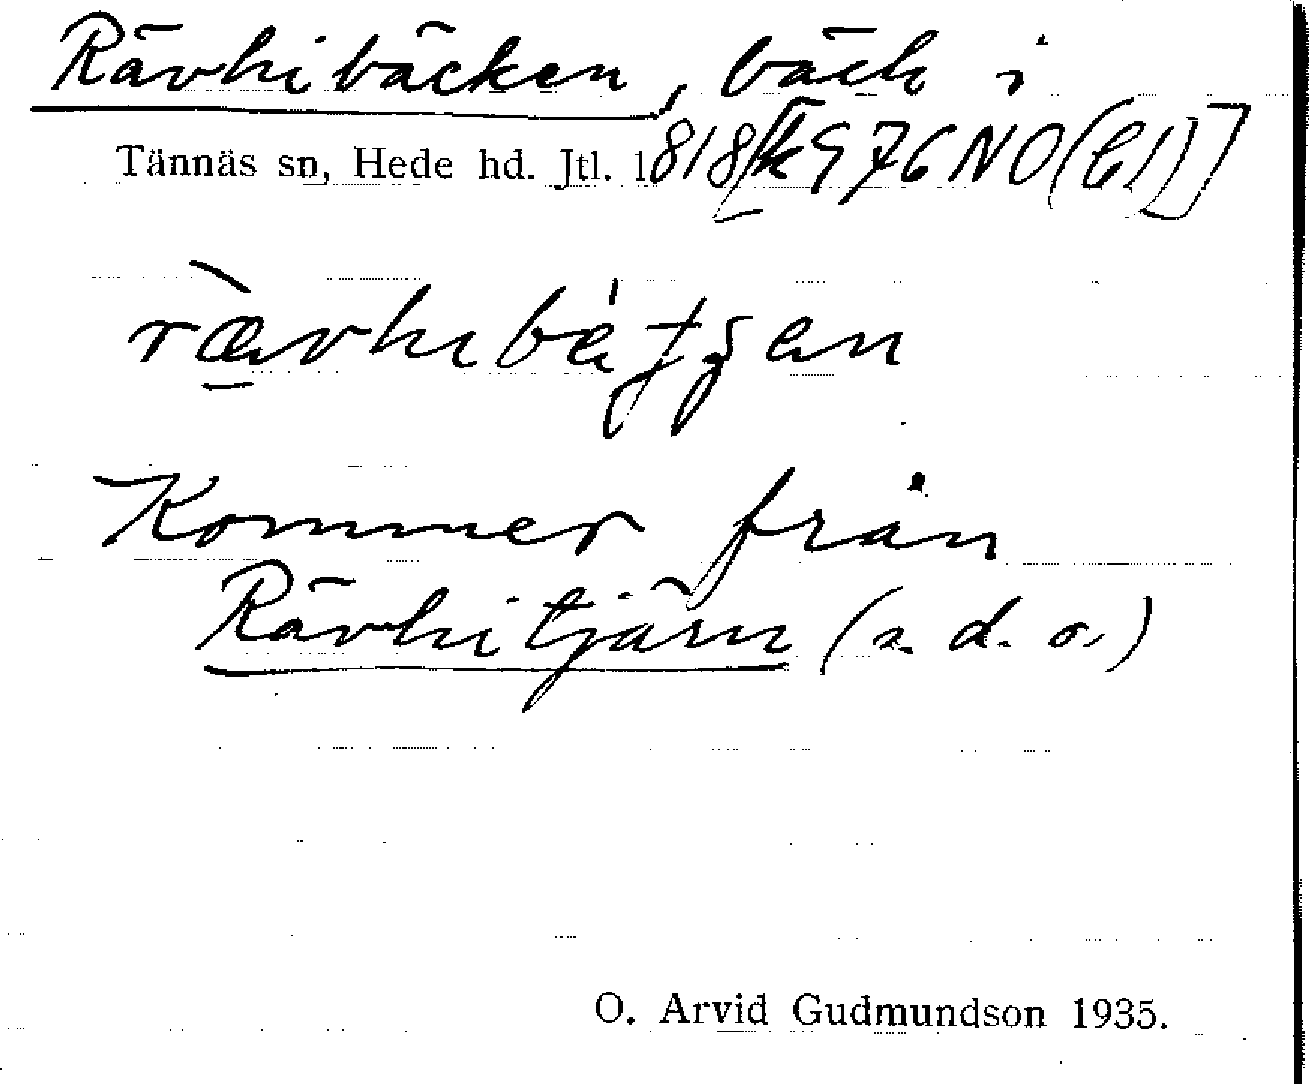 Rävhibäcken, bäck i
Tännäs sn, Hede hd. Jtl. l. 818 [K 976 NO (61)]
Kommer från
Rävhitjärn (s. d. o.)
O. Arvid Gudmundson 1935.